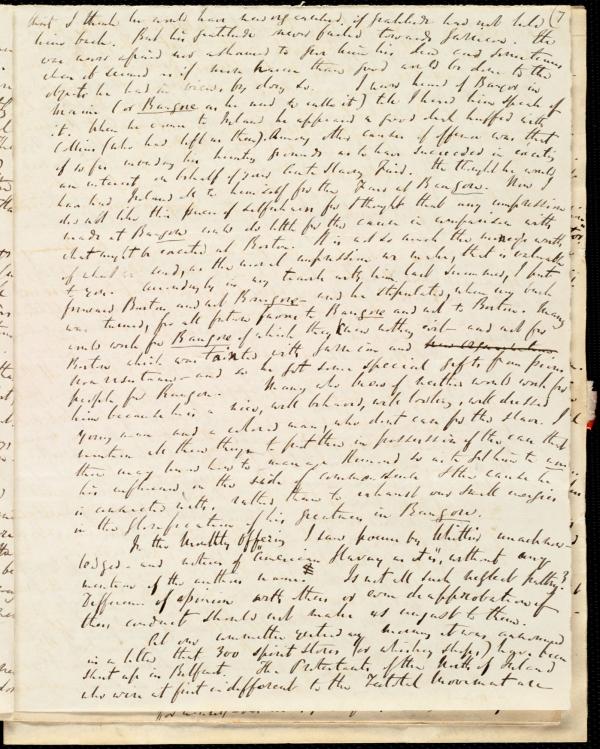 (7
that I think he would have never succeeded, if gratitude had not held
him back. But his gratitude never failed towards Garrison. He
was never afraid nor ashamed to give him his due and sometimes
when it seemed as if more harm than good would be done to the
objects he had in view, by doing so. I never heard of Bangor in
Maine (or Bangore as he used to call it) till I heard him speak of
it. When he came to Ireland he appeared a good deal huffed with
Collins (who had left us then). Among other causes of offence was that
of so far invading his hunting grounds as to have succeeded in exciting
an interest on behalf of your Anti Slavery Fair. He thought he would
have had Ireland all to himself for the Fair at Bangore. Now I
did not like this piece of selfishness for I thought that any impression
made at Bangore would do little for the cause in comparison with
what might be created at Boston. It is not so much the money's worth
of what we send, as the moral impression we make, that is valuable
to you. Accordingly in my travels with him last summer, I put
forward Boston and not Bangore and he stipulated, when my back
was turned, for all future favors to Bangore and not to Boston. Many
would work for Bangore of which they knew nothing evil and not for
Boston which was tainted with Garrison and
Non resistance and so he got some special gifts from pious
people for Bangore. Many who knew of neither would work for
him because he is a nice, well behaved, well looking, well dressed
young man and a colored man, who dont care for the slave. I
mention all these things to put thee in possession of the case that
thee may know how to manage Remond so as to get him to use
his influence on the side of common sense &
is connected with, rather than to exhaust our small energies
in the glorification of his greatness in Bangore.
In the Monthly Offering I saw poems by Whittier unacknow-
ledged and notices of "American Slavery as it is", without any
mention of the authors name. Is not all such neglect paltry?
Difference of opinion with others or even disapprobation of
their conduct should not make us unjust to them.
At our committee yesterday morning it was announced
in a letter that 300 spirit stores (or whiskey shops) have been
shut up in Belfast. The Protestants of the North of Ireland
who were at first indifferent to the Teetotal movement are